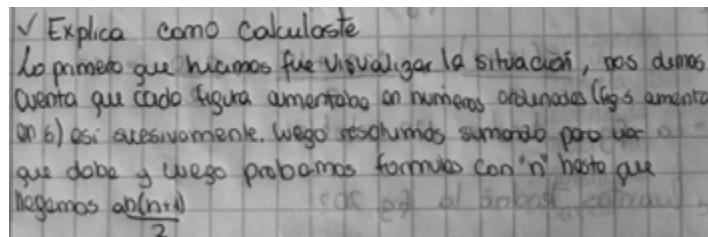 ✓ Explica como calculaste
Lo primero que hicimos fue visualizar la situación, nos dimos
cuenta que cada figura aumentaba en numeros ordenados (fig 5 aumenta
en 6) asi sucesivamente. luego resolvimos sumando para ver
que daba y luego probamos formulas con "n" hasta que
llegamos a n(n+1)/2